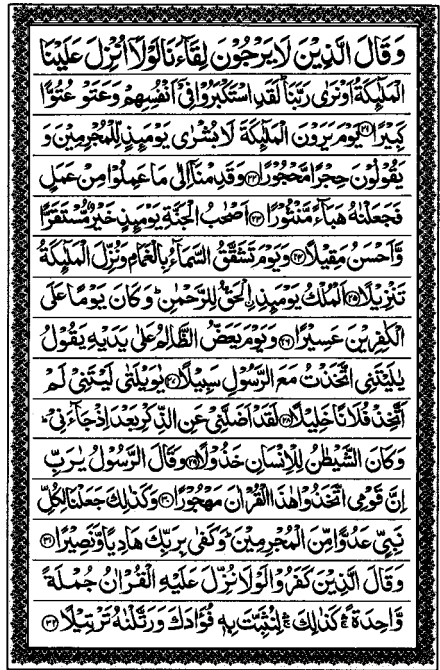 وَقَالَ الَّذِيْنَ لَا يَرْجُوْنَ لِقَآءَنَا لَوْلَاۤ اُنْزِلَ عَلَيْنَا
الْمَلٰٓئِكَةُ اَوْ نَرٰى رَبَّنَاؕ لَقَدِ اسْتَكْبَرُوْا فِيْۤ اَنْفُسِهِمْ وَعَتَوْ عُتُوًّا
كَبِيْرًا ﴿۲۱﴾ يَوْمَ يَرَوْنَ الْمَلٰٓئِكَةَ لَا بُشْرٰى يَوْمَئِذٍ لِّلْمُجْرِمِيْنَ وَ
يَقُوْلُوْنَ حِجْرًا مَّحْجُوْرًا ﴿۲۲﴾ وَقَدِمْنَاۤ اِلٰى مَا عَمِلُوْا مِنْ عَمَلٍ
فَجَعَلْنٰهُ هَبَآءً مَّنْثُوْرًا ﴿۲۳﴾ اَصْحٰبُ الْجَنَّةِ يَوْمَئِذٍ خَيْرٌ مُّسْتَقَرًّا
وَّاَحْسَنُ مَقِيْلًا ﴿۲۴﴾ وَيَوْمَ تَشَقَّقُ السَّمَآءُ بِالْغَمَامِ وَنُزِّلَ الْمَلٰٓئِكَةُ
تَنْزِيْلًا ﴿۲۵﴾ اَلْمُلْكُ يَوْمَئِذِ ۨالْحَقُّ لِلرَّحْمٰنِؕ وَكَانَ يَوْمًا عَلَى
الْكٰفِرِيْنَ عَسِيْرًا ﴿۲۶﴾ وَيَوْمَ يَعَضُّ الظَّالِمُ عَلٰى يَدَيْهِ يَقُوْلُ
يٰلَيْتَنِي اتَّخَذْتُ مَعَ الرَّسُوْلِ سَبِيْلًا ﴿۲۷﴾ يٰوَيْلَتٰى لَيْتَنِيْ لَمْ
اَتَّخِذْ فُلَانًا خَلِيْلًا ﴿۲۸﴾ لَقَدْ اَضَلَّنِيْ عَنِ الذِّكْرِ بَعْدَ اِذْ جَآءَنِيْؕ
وَكَانَ الشَّيْطٰنُ لِلْاِنْسَانِ خَذُوْلًا ﴿۲۹﴾ وَقَالَ الرَّسُوْلُ يٰرَبِّ
اِنَّ قَوْمِي اتَّخَذُوْا هٰذَا الْقُرْاٰنَ مَهْجُوْرًا ﴿۳۰﴾ وَكَذٰلِكَ جَعَلْنَا لِكُلِّ
نَبِيٍّ عَدُوًّا مِّنَ الْمُجْرِمِيْنَؕ وَكَفٰى بِرَبِّكَ هَادِيًا وَّنَصِيْرًا ﴿۳۱﴾
وَقَالَ الَّذِيْنَ كَفَرُوْا لَوْلَا نُزِّلَ عَلَيْهِ الْقُرْاٰنُ جُمْلَةً
وَّاحِدَةً ۛۚ كَذٰلِكَ ۛۚ لِنُثَبِّتَ بِهٖ فُؤَادَكَ وَرَتَّلْنٰهُ تَرْتِيْلًا ﴿۳۲﴾